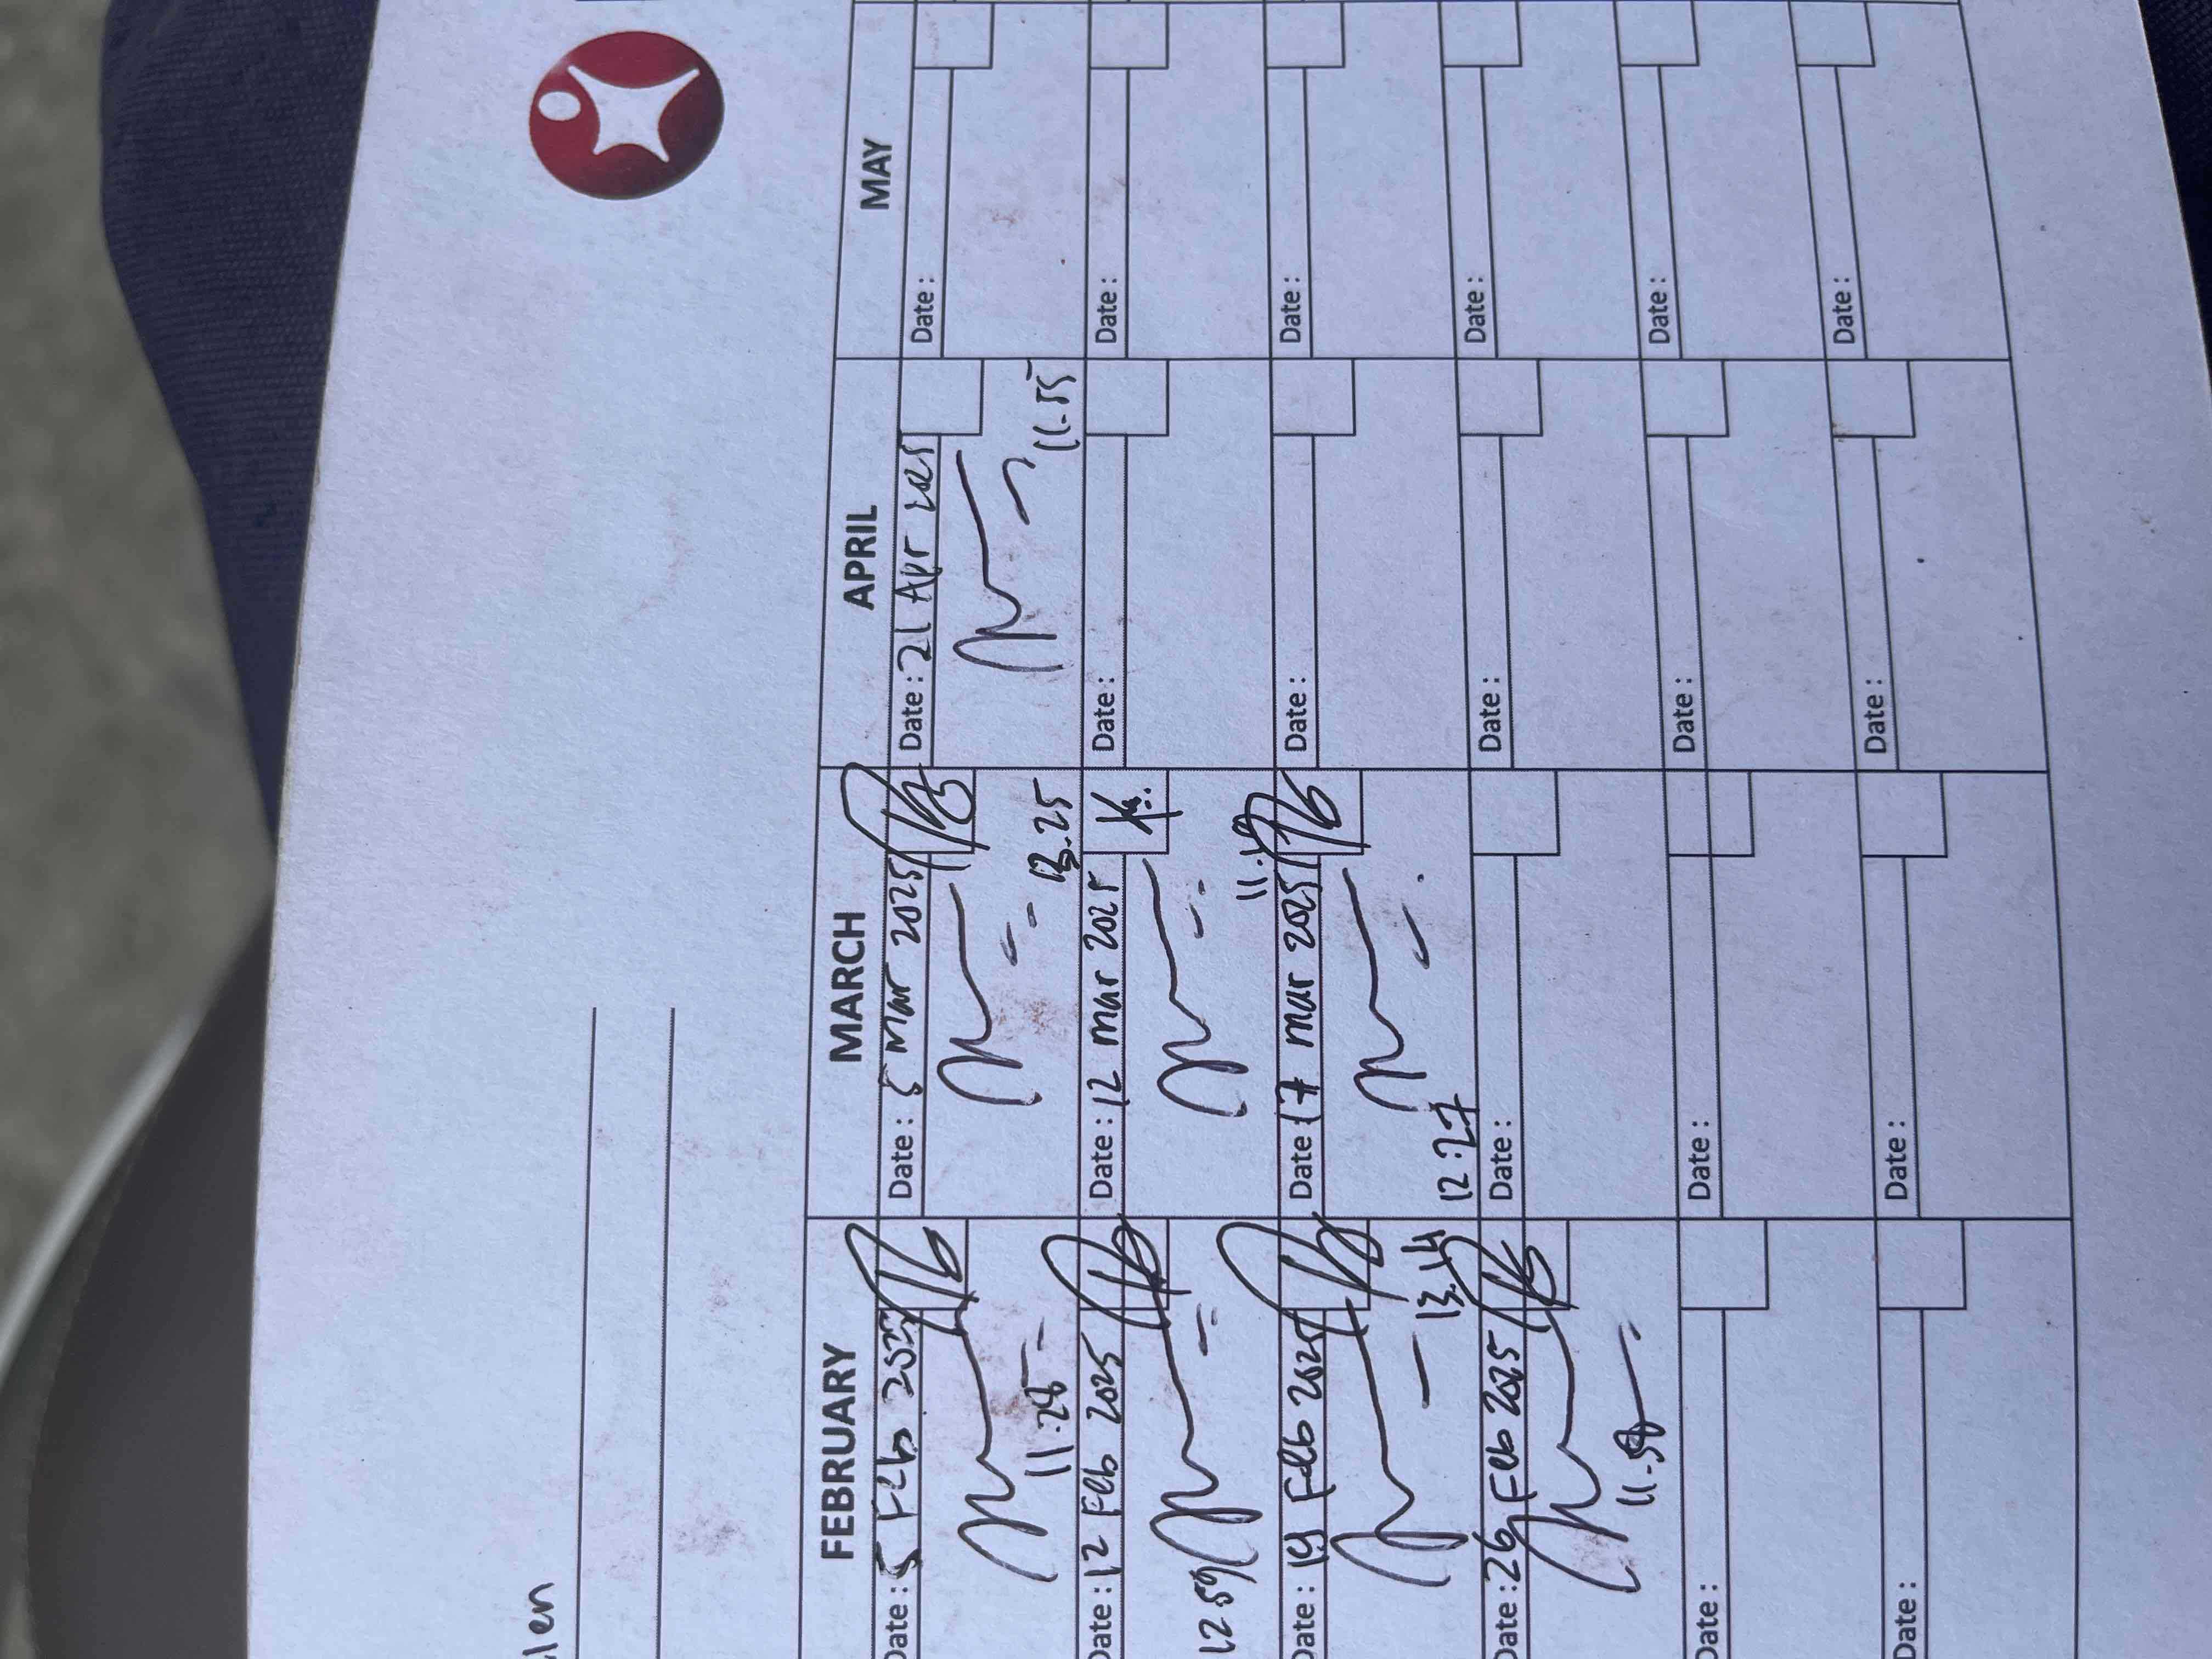 len
FEBRUARY MARCH APRIL MAY
Date : 5 Feb Date : 5 Mar 2025 Date : 21 Apr 2025 Date :
11:28 13.25 11.55
Date : 12 Feb 2025 Date : 12 Mar 2025 Date : Date :
12 59 11.19
Date : 19 Feb 2025 Date 17 Mar 2025 Date : Date :
13.44 12:27
Date : 26 Feb 2025 Date : Date : Date :
Date : Date : Date : Date :
Date : Date : Date : Date :